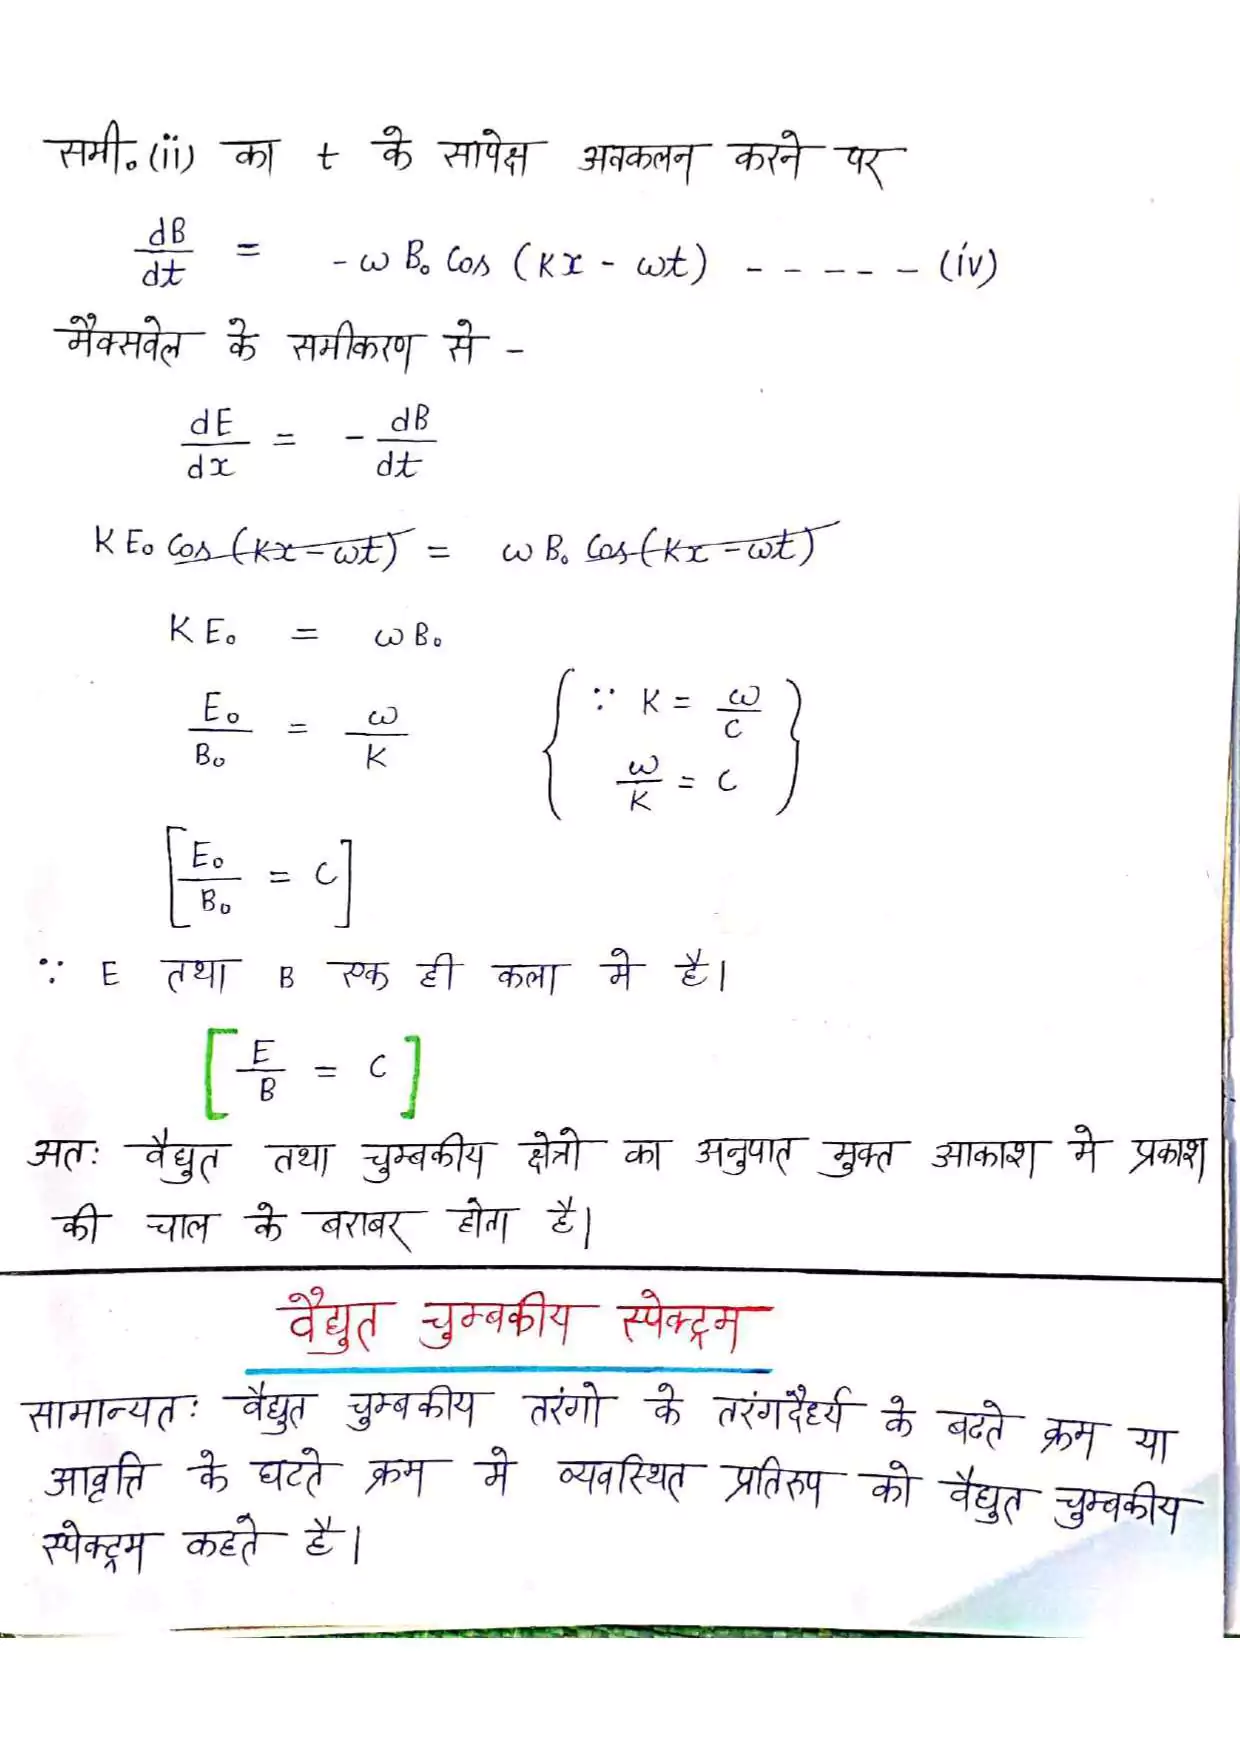 समी.(ii) का t के सापेक्ष अवकलन करने पर
dB/dt = -ω B₀ Cos (Kx - ωt) - - - - - (iv)
मैक्सवेल के समीकरण से -
dE/dx = - dB/dt
K E₀ Cos (Kx - ωt) = ω B₀ Cos (Kx - ωt)
K E₀ = ω B₀
E₀/B₀ = ω/K { ∵ K = ω/C
ω/K = C }
[E₀/B₀ = C]
∵ E तथा B एक ही कला मे है।
[E/B = C]
अतः वैद्युत तथा चुम्बकीय क्षेत्रो का अनुपात मुक्त आकाश मे प्रकाश
की चाल के बराबर होता है।
वैद्युत चुम्बकीय स्पेक्ट्रम
सामान्यतः वैद्युत चुम्बकीय तरंगो के तरंगदैर्ध्य के बढते क्रम या
आवृत्ति के घटते क्रम मे व्यवस्थित प्रतिरुप को वैद्युत चुम्बकीय
स्पेक्ट्रम कहते है।